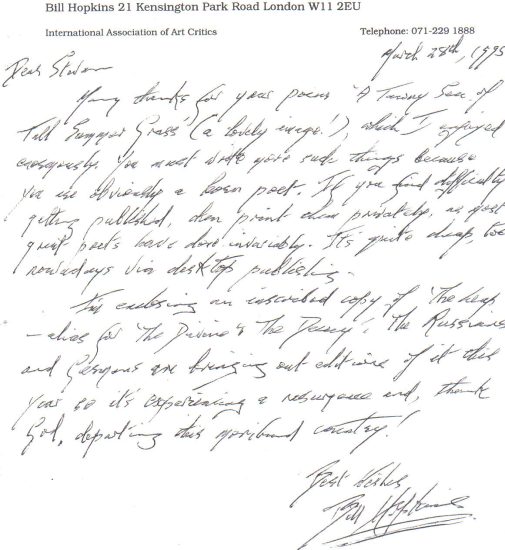 Bill Hopkins 21 Kensington Park Road London W11 2EU
International Association of Art Critics
Telephone: 071-229 1888
March 28th, 1995
Dear
Many thanks for your poem 'A Tawny Sea of
Tall Summer Grass' (a lovely image!), which I enjoyed
enormously. You must write more such things because
you are obviously a born poet. If you find difficulty
getting published, then print them privately, as most
great poets have done invariably. It's quite cheap, too
nowadays via desktop publishing.
I'm enclosing an inscribed copy of 'The Leap'
– alias for 'The Divine & The Decay'. The Russians
and Germans are bringing out editions of it this
year so it's experiencing a resurgence and, thank
God, departing this moribund country!
Best Wishes
Bill Hopkins